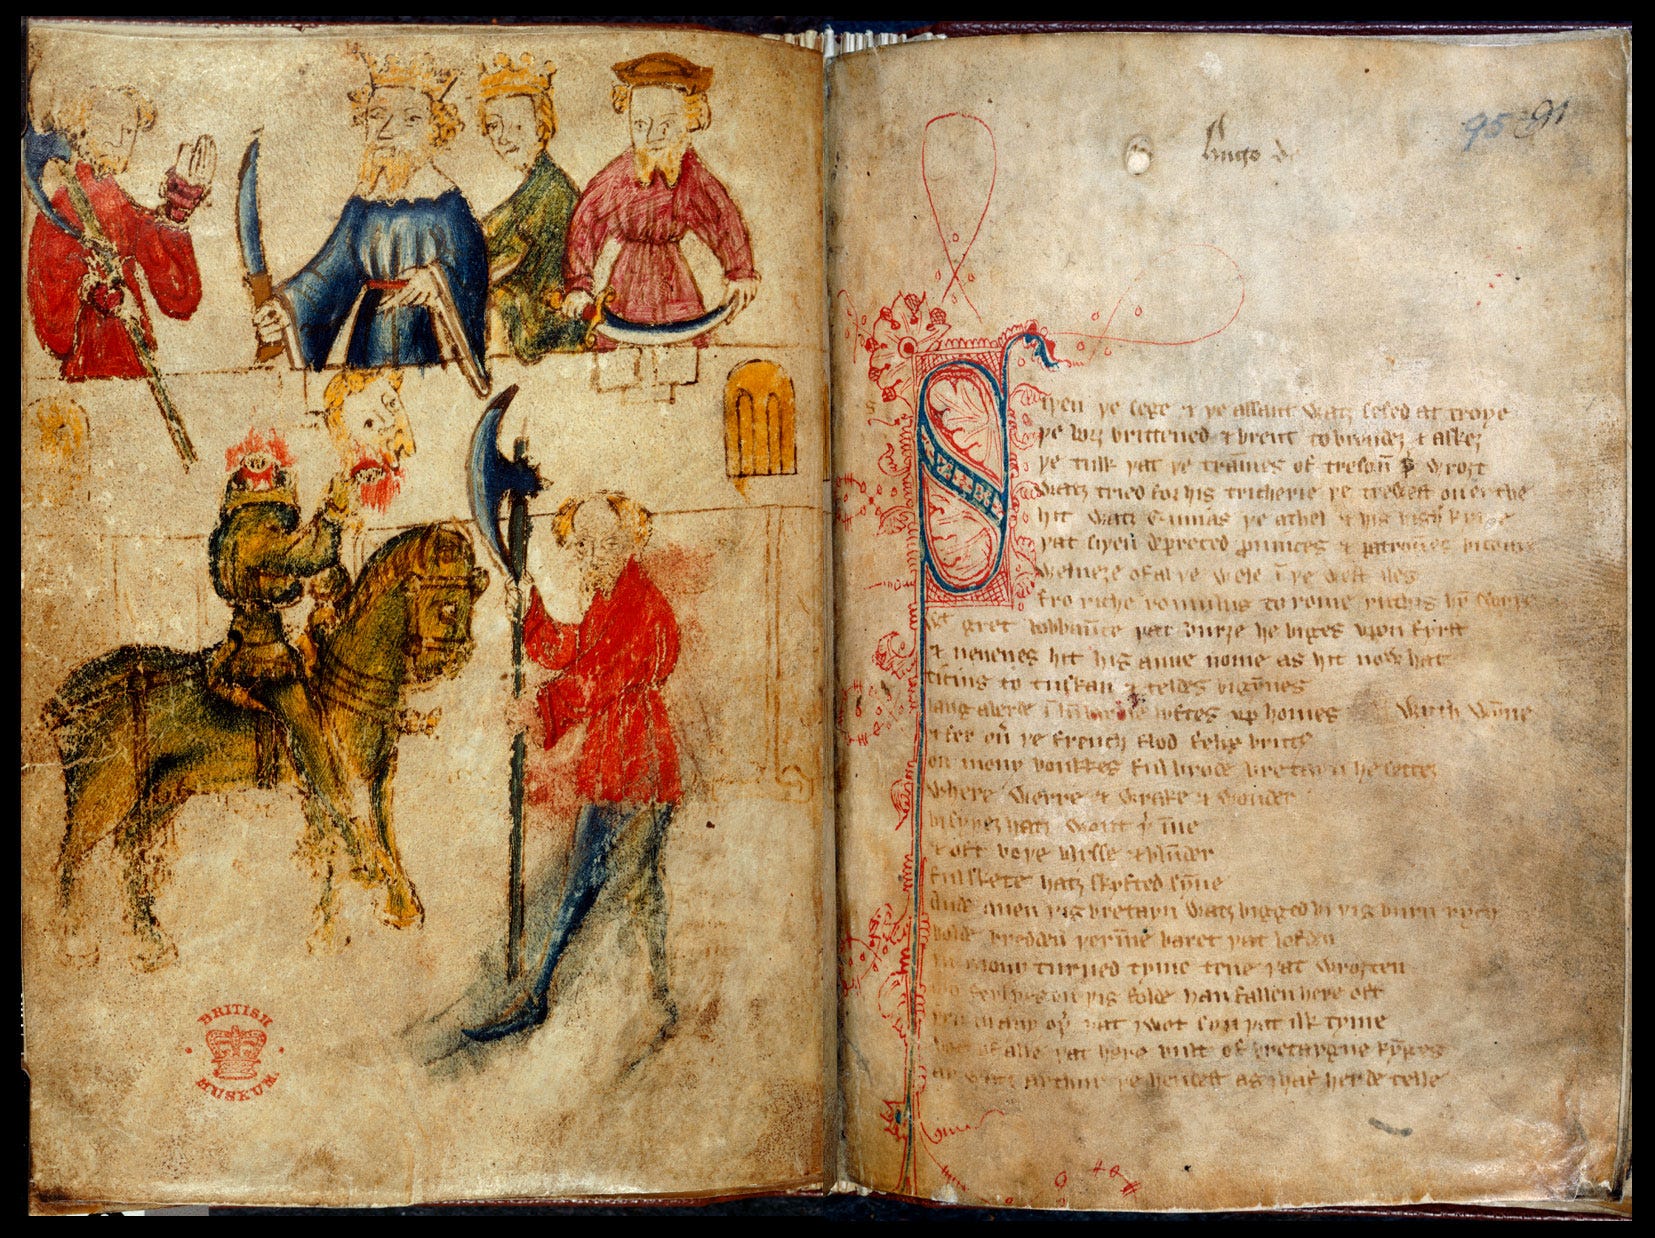 BRITISH
MUSEUM
95 91
Hugo de
Siþen þe sege & þe assaut watz sesed at troye
þe borȝ brittened & brent to brondeȝ & askez
þe tulk þat þe trāmes of tresoū þ wroȝt
watz tried for his tricherie þe trewest on erthe
hit watz Ennias þe athel & his highe kynde
þat siþen depreced prouinces & patrounes bicome
welneȝe of al þe wele ī þe west iles
fro riche romulus to rome ricchis hȳ swyþe
gret bobbaūce þat burȝe he biges vpon fyrst
& neuenes hit his aune nome as hit now hat
ticius to tuskan & teldes bigȳnes
langaberde ī lūbardie lyftes vp homes wyth wȳne
& fer oū þe french flod felix brutus
on mony bonkkes ful brode bretayn he settez
where werre & wrake & wonder
bi syþez hatz wont þīne
& oft boþe blysse & blūder
ful skete hatz skyfted sȳne
Ande quen þis bretayn watz bigged bi þis burn rych
bolde bredden þerīne baret þat lofden
in mony turned tyme tene þat wroȝten
mo ferlyes on þis folde han fallen here oft
þen in any oþ þat I wot syn þat ilk tyme
bot of alle þat here bult of bretaygne kȳges
ay watz arthur þe hendest as I haf herde telle